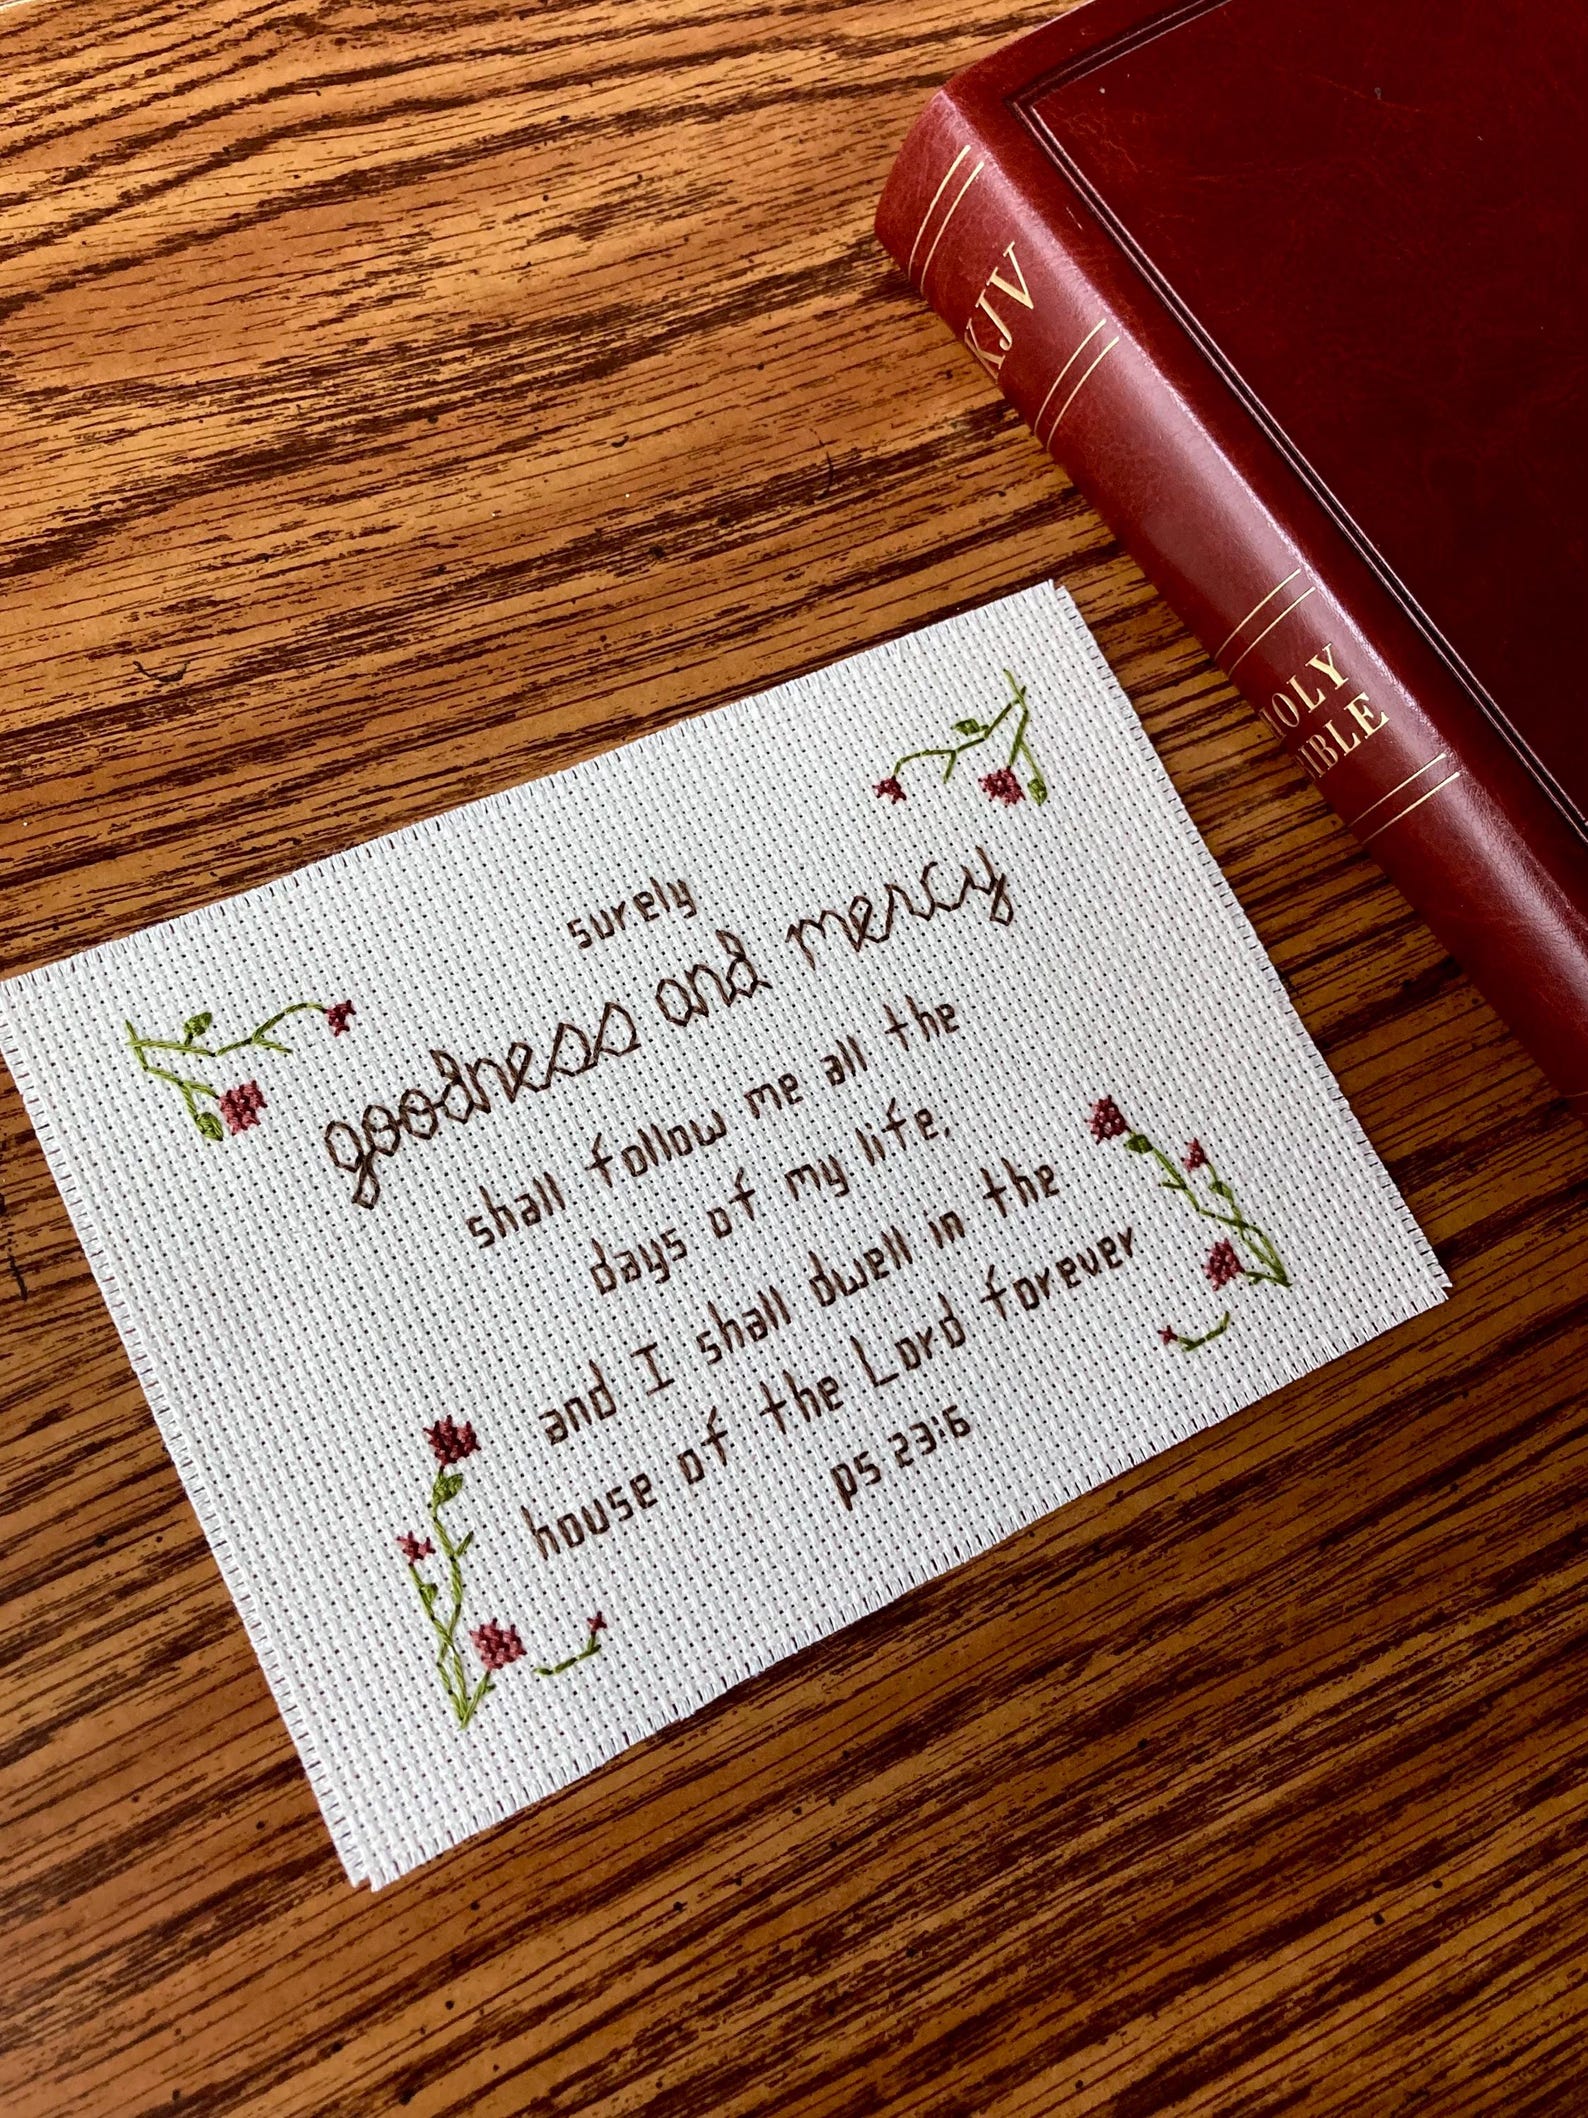 KJV
HOLY
BIBLE
surely
goodness and mercy
shall follow me all the
days of my life,
and I shall dwell in the
house of the Lord forever
ps 23:6